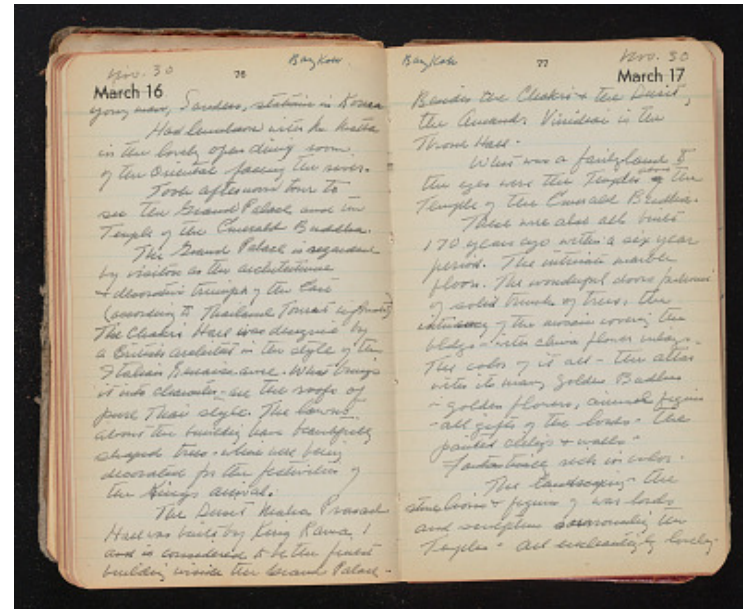 Nov. 30
76
Bangkok
March 16
young man, stationed in Korea
Had luncheon with Mr. Matta
in the lovely open dining room
of the Oriental facing the river.
Took afternoon tour to
see the Grand Palace and the
Temple of the Emerald Buddha.
The Grand Palace is regarded
by visitors as the architectural
+ decorative triumph of the East
(according to Thailand Tourist info
The Chakri Hall was designed by
a British architect in the style of the
Italian Renaissance. What brings
it into character - are the roofs of
pure Thai style. The lawns
about the building have beautifully
shaped trees - which were being
decorated for the festivities of
the King's arrival.
The Dusit Maha Prasad
Hall was built by King Rama I
and is considered to be the finest
building inside the Grand Palace -
Bangkok
77
Nov. 30
March 17
Besides the Chakri + the Dusit,
the Amarindr Vinichai is the
Throne Hall.
What was a fairyland to
the eyes were the Temples the
Temple of the Emerald Buddha.
These were also all built
170 years ago within a six year
period. The intricate marble
floor. The wonderful doors
of solid trunks of trees, the
of the mosaic covering the
bldgs - with flower
The color of it all - the altar
with its many golden Buddhas
- golden flowers, animal figures
- all gifts of the - the
painted ceilings + walls -
Fantastically rich in color.
The landscaping - the
stone lions + figures of war lords
and sculpture surrounding the
Temples - all enchantingly lovely